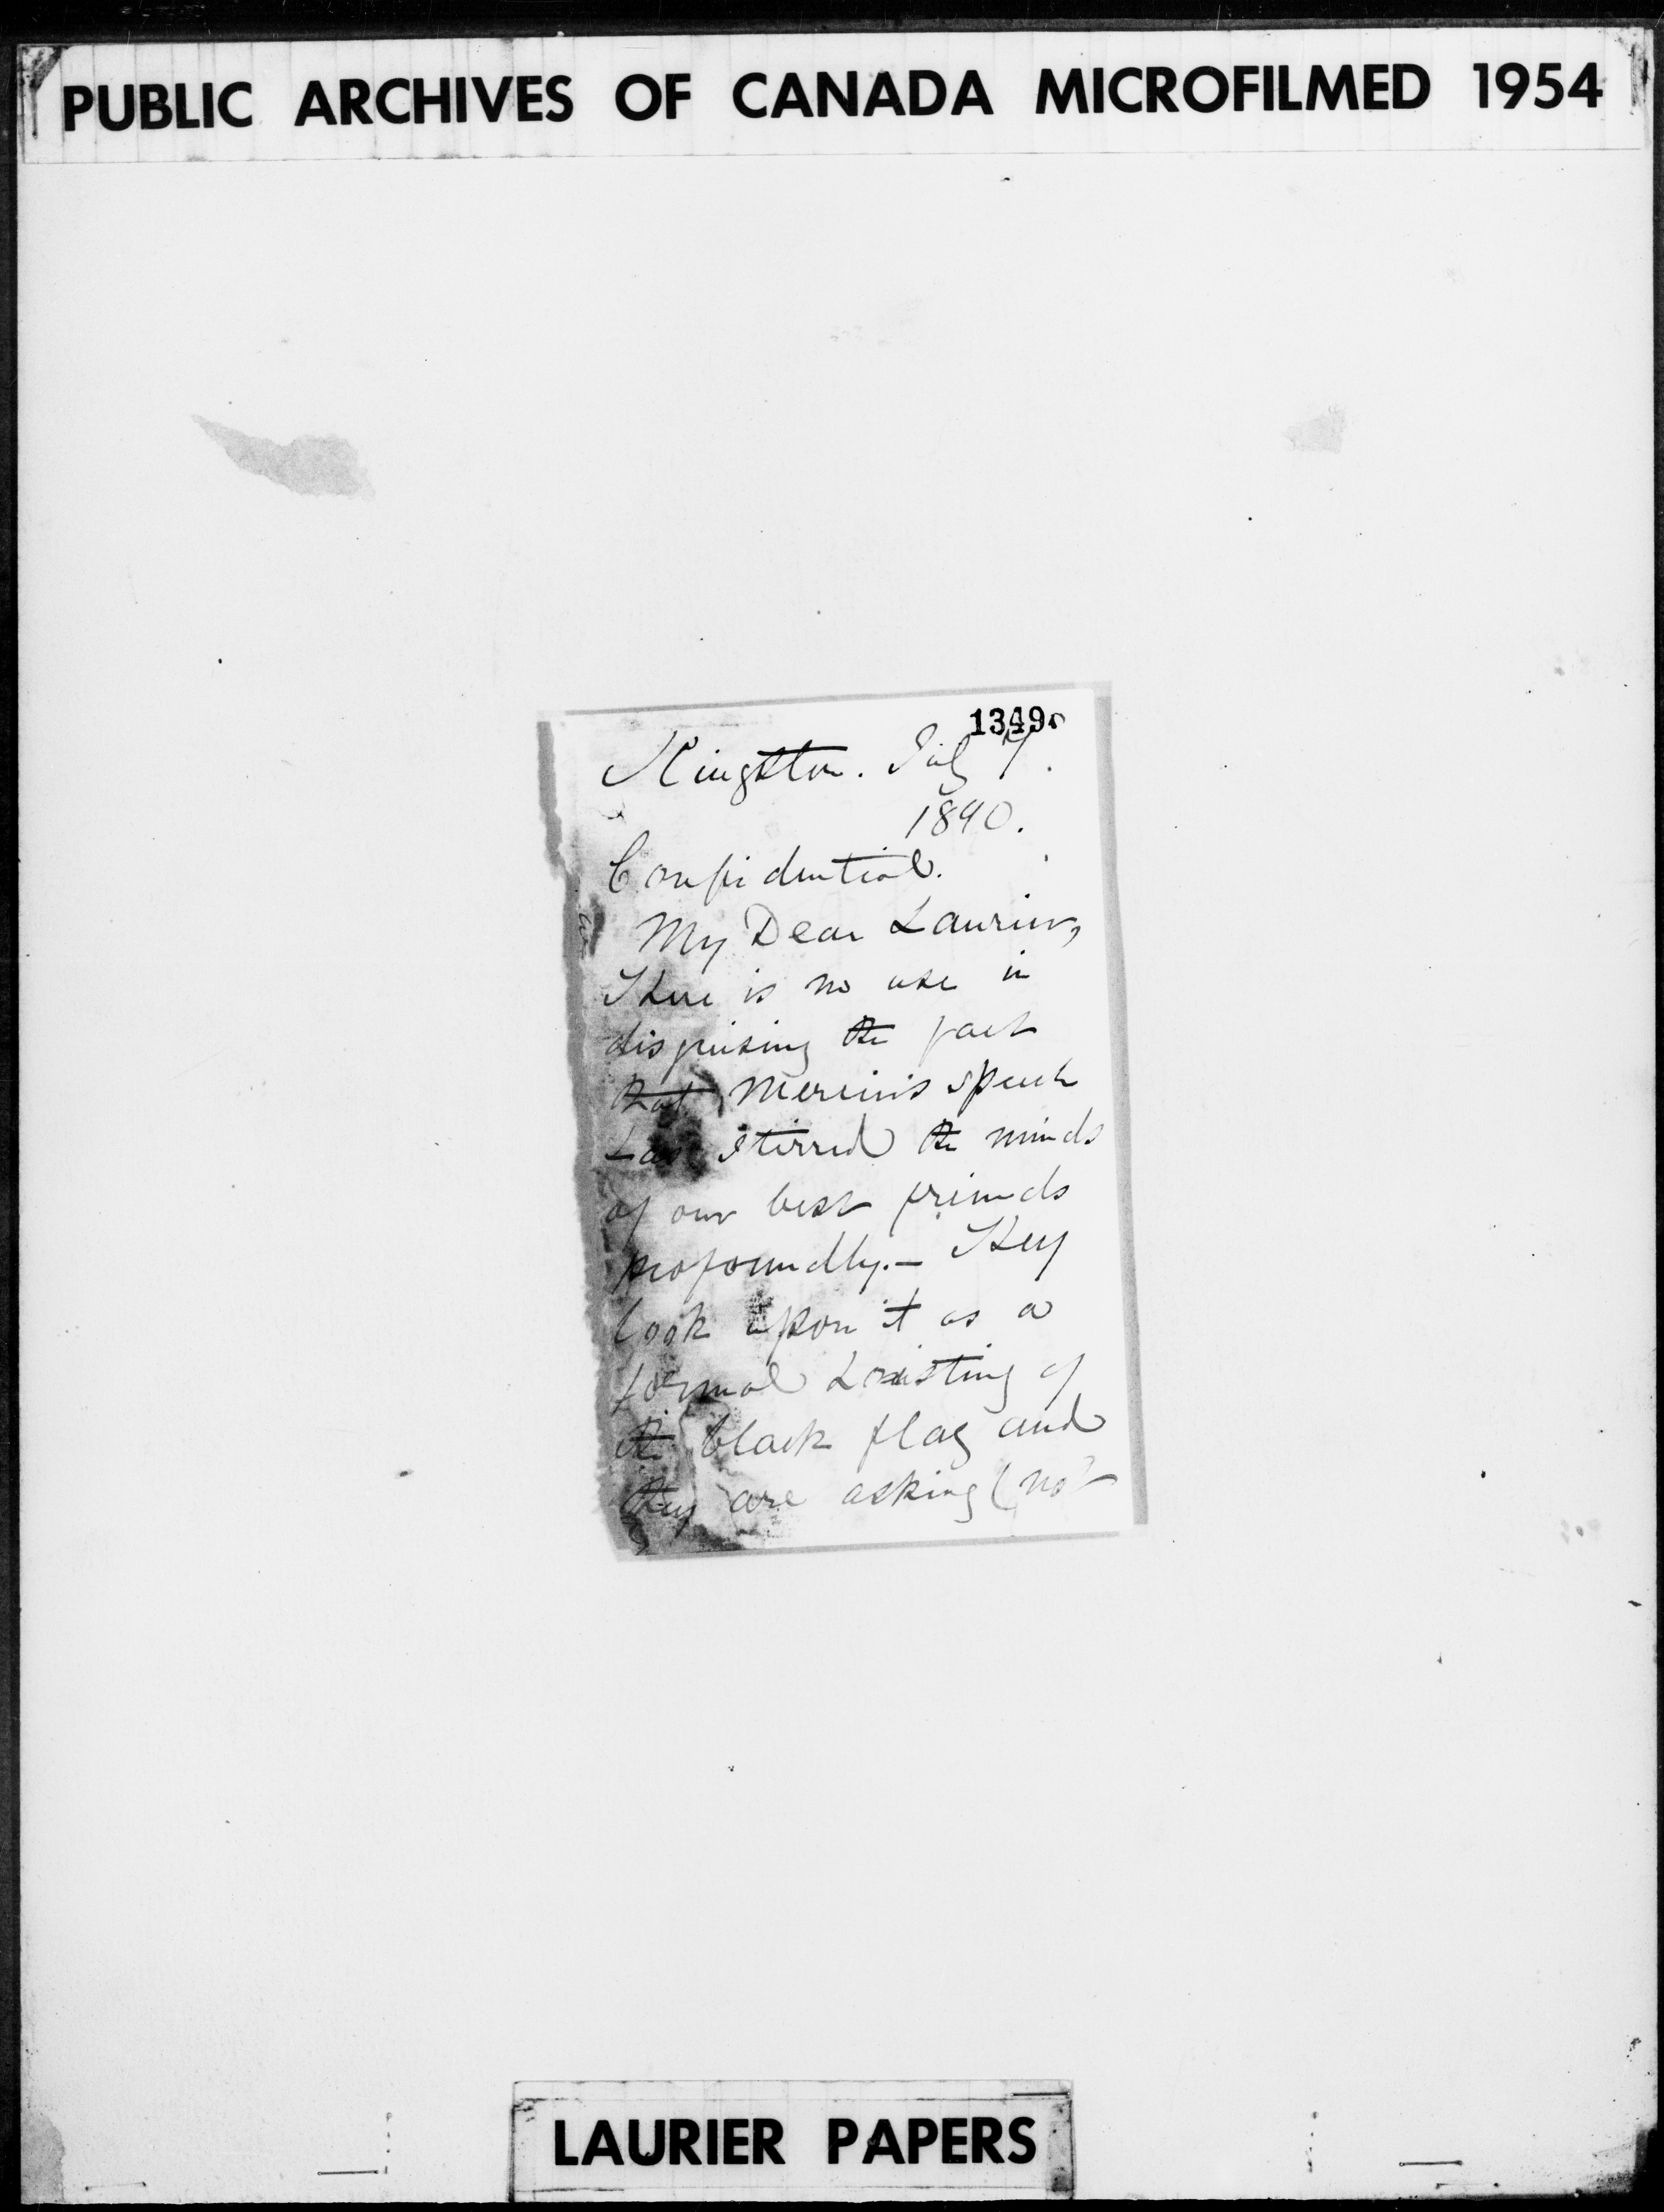 PUBLIC ARCHIVES OF CANADA MICROFILMED 1954
1349
Kingston. July 7.
1890.
Confidential.
My Dear Laurier,
There is no use in
disguising the fact
that Mercier's speech
has stirred the minds
of our best friends
profoundly.— They
look upon it as a
formal hoisting of
the black flag and
they are asking (not
LAURIER PAPERS